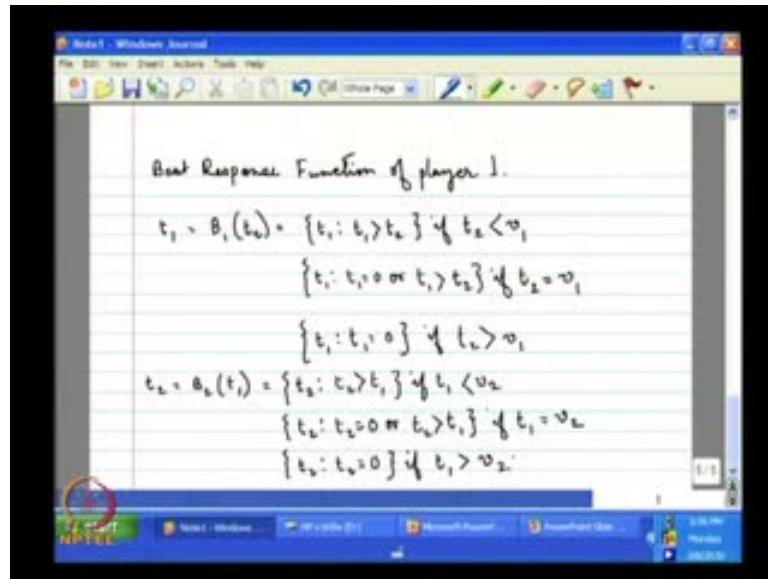 Note1 - Windows Journal
File Edit View Insert Actions Tools Help
Whole Page
Best Response Function of player 1.
t₁ = B₁(t₂) = {t₁: t₁>t₂} if t₂ < v₁
{t₁: t₁=0 or t₁>t₂} if t₂ = v₁
{t₁: t₁=0} if t₂ > v₁
t₂ = B₂(t₁) = {t₂: t₂>t₁} if t₁ < v₂
{t₂: t₂=0 or t₂>t₁} if t₁ = v₂
{t₂: t₂=0} if t₁ > v₂.
5/5
NPTEL
Note1 - Windows...
Monday